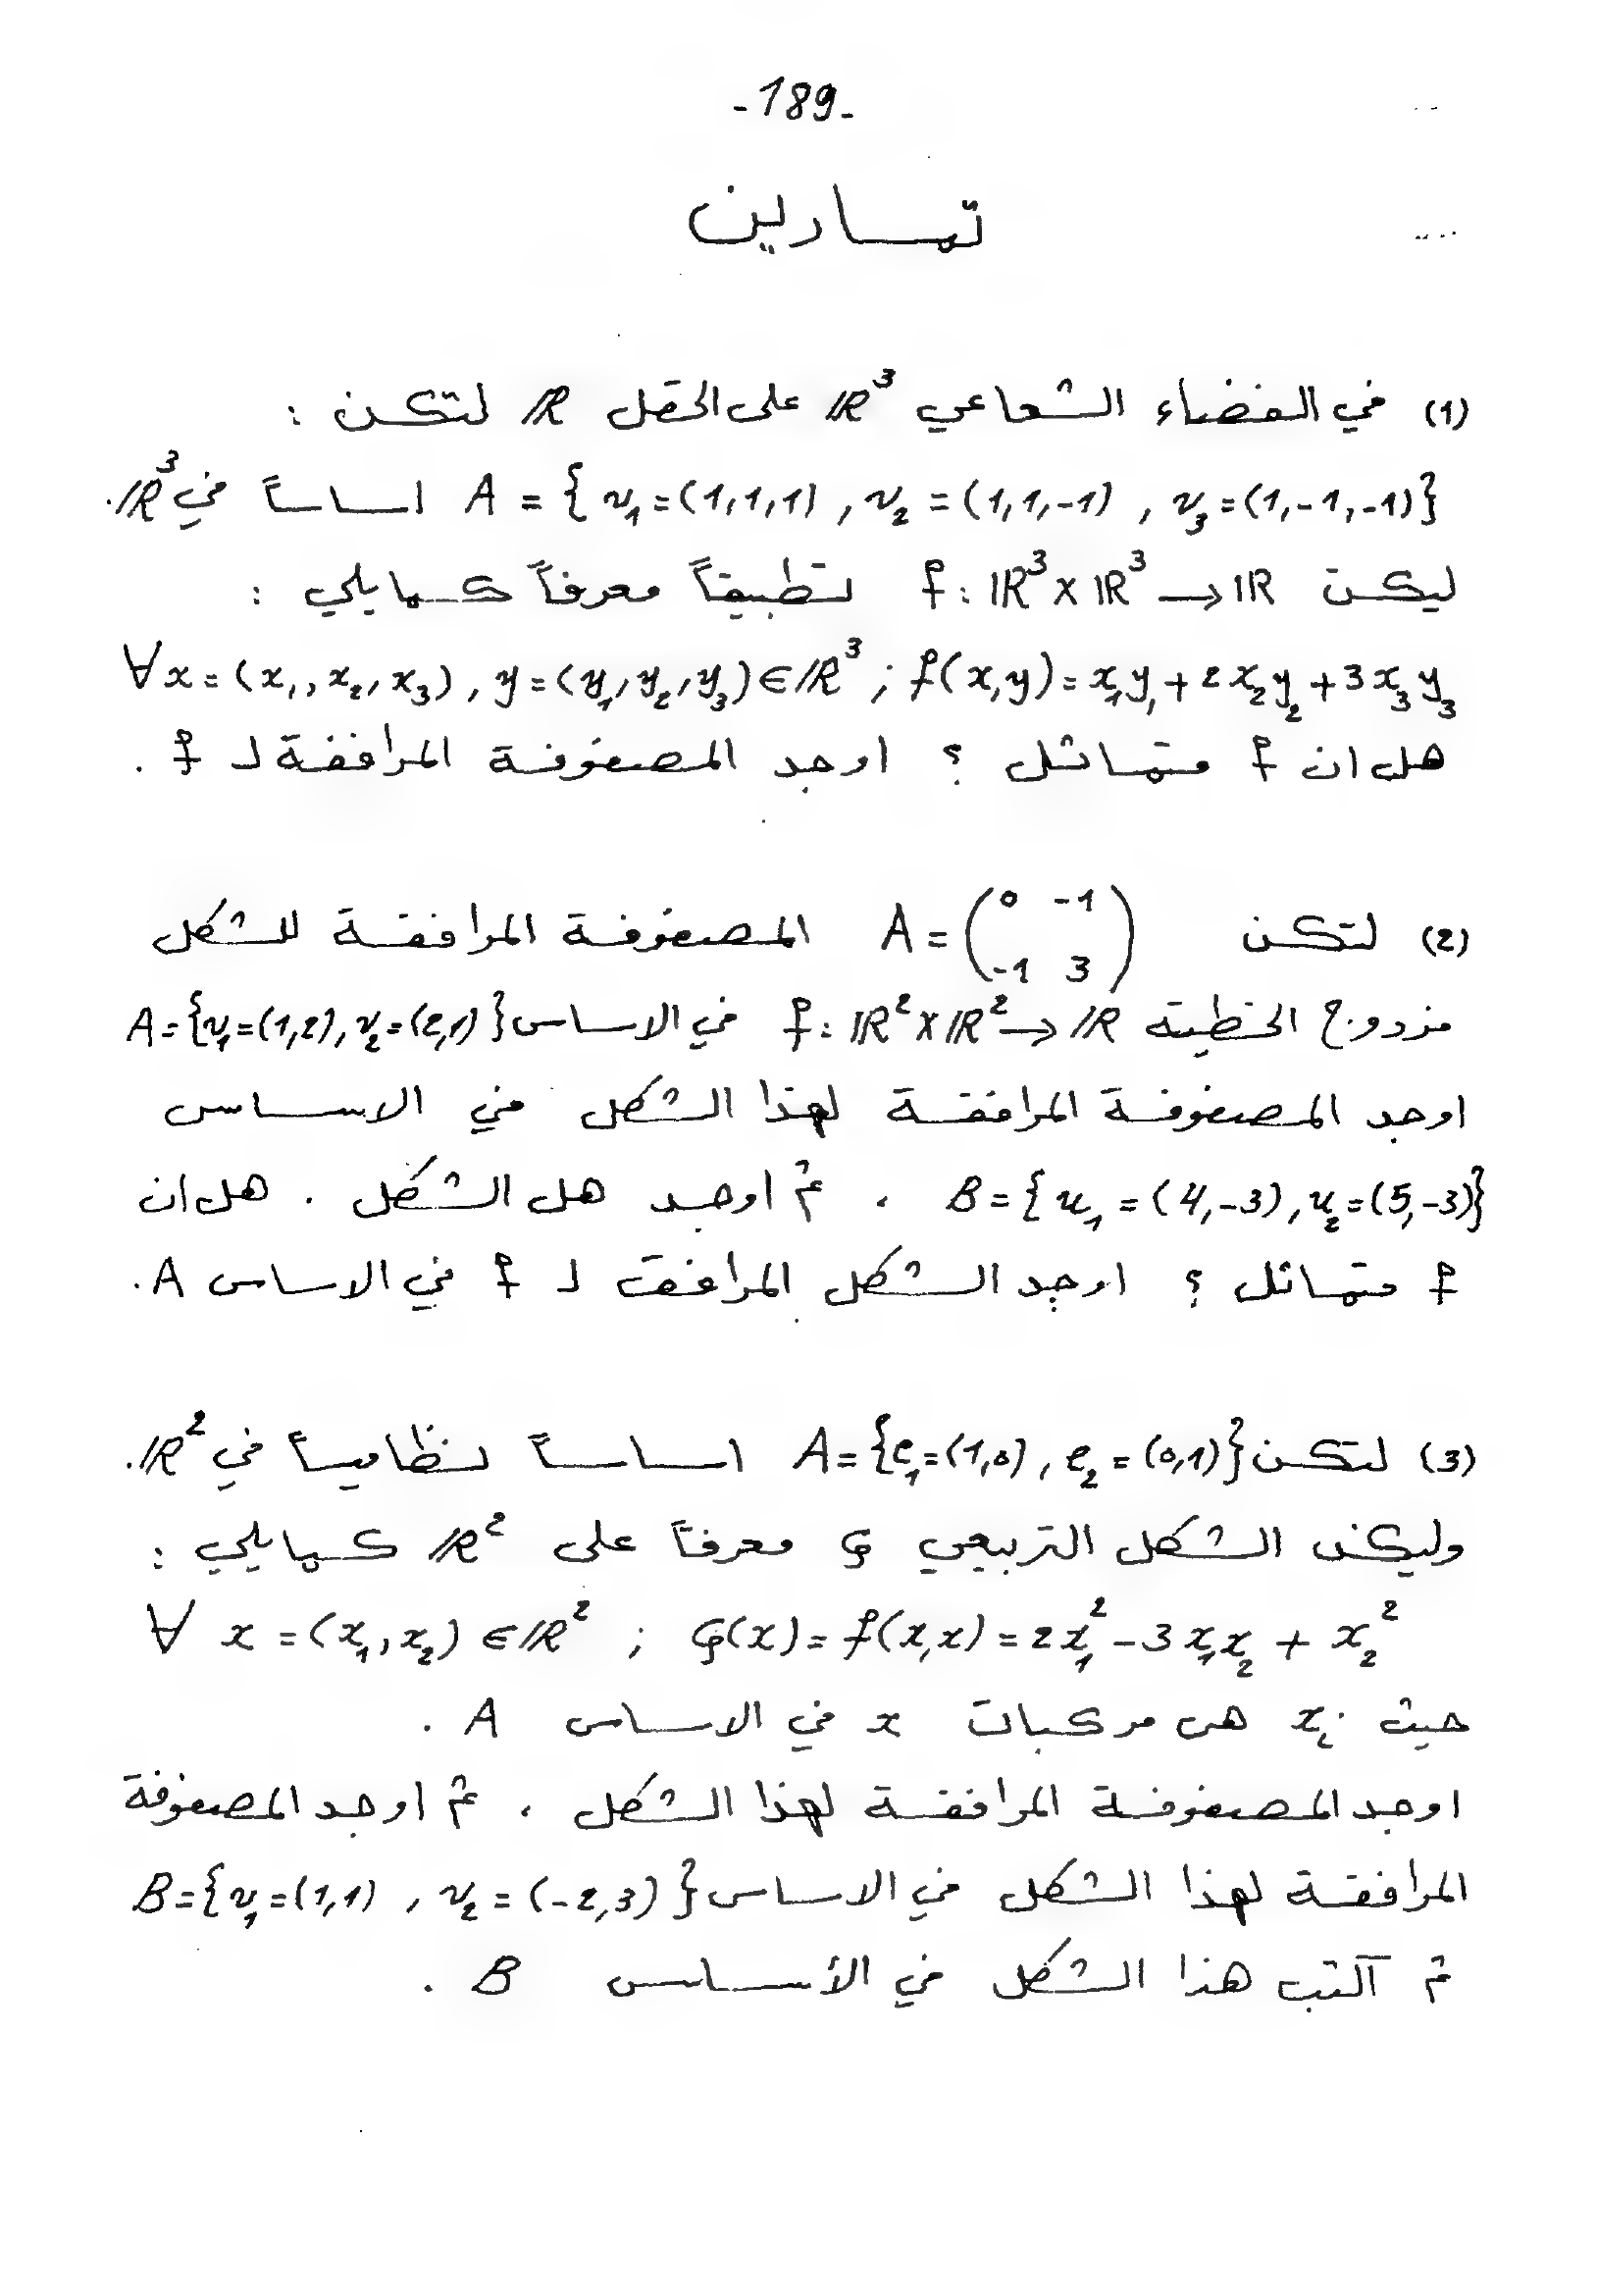 -189-
تمارين
(1) في الفضاء الشعاعي ℝ³ على الحقل ℝ لتكن :
A = { v₁=(1,1,1) , v₂ = (1,1,-1) , v₃=(1,-1,-1)} اساساً في ℝ³.
ليكن f: ℝ³ x ℝ³ → ℝ تطبيقاً معرفاً كمايلي :
∀x=(x₁, x₂, x₃), y=(y₁, y₂, y₃)∈ℝ³ ; f(x,y)=x₁y₁+2x₂y₂+3x₃y₃
هل ان f متماثل ؟ اوجد المصفوفة المرافقة لـ f .
(2) لتكن A = \begin{pmatrix} 0 & -1 \\ -1 & 3 \end{pmatrix} المصفوفة المرافقة للشكل
مزدوج الخطية f: ℝ² x ℝ² → ℝ في الاساس A={v₁=(1,2), v₂=(2,1)}
اوجد المصفوفة المرافقة لهذا الشكل في الاساس
B={u₁=(4,-3), u₂=(5,-3)} . ثم اوجد هل الشكل . هل ان
f متماثل ؟ اوجد الشكل المرافق لـ f في الاساس A.
(3) لتكن A={e₁=(1,0), e₂=(0,1)} اساساً نظامياً في ℝ².
وليكن الشكل التربيعي φ معرفاً على ℝ² كمايلي :
∀ x=(x₁, x₂) ∈ ℝ² ; φ(x)=f(x,x)=2x₁²-3x₁x₂+x₂²
حيث xᵢ هي مركبات x في الاساس A .
اوجد المصفوفة المرافقة لهذا الشكل ، ثم اوجد المصفوفة
المرافقة لهذا الشكل في الاساس B={v₁=(1,1) , v₂=(-2,3)}
ثم آكتب هذا الشكل في الأساس B .